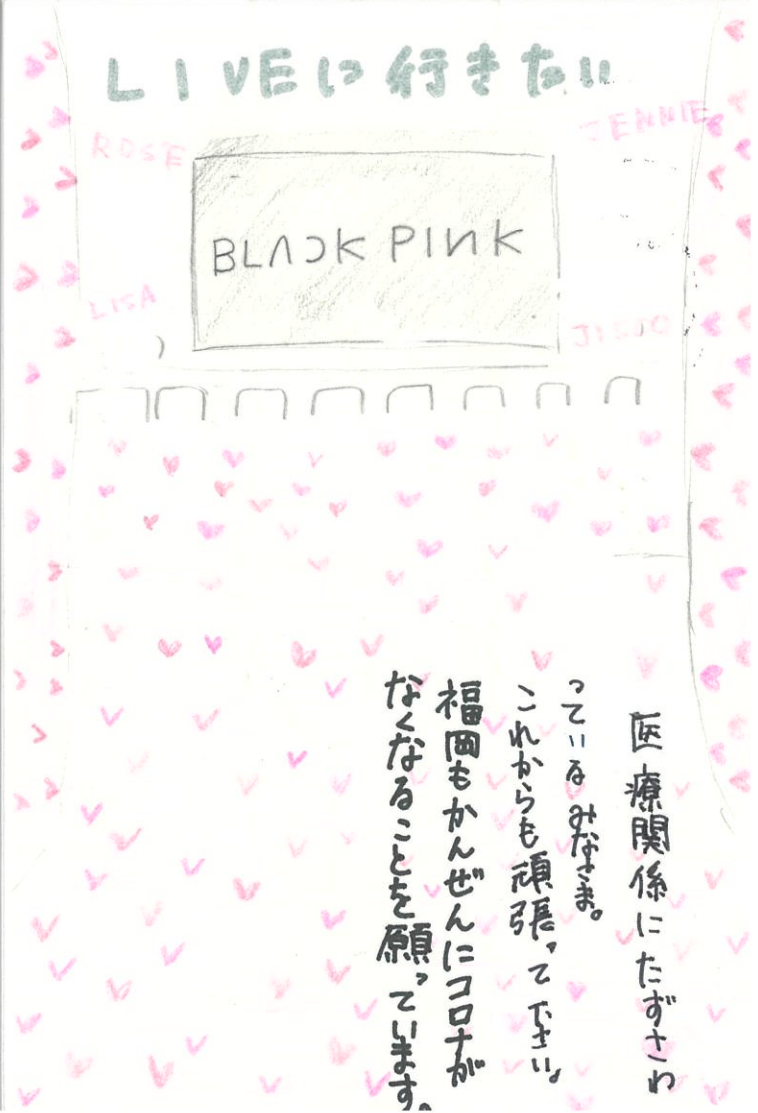 LIVEに行きたい
ROSÉ
JENNIE
BLACKPINK
LISA
JISOO
医療関係にたずさわ
っているみなさま。
これからも頑張って下さい。
福岡もかんぜんにコロナが
なくなることを願っています。